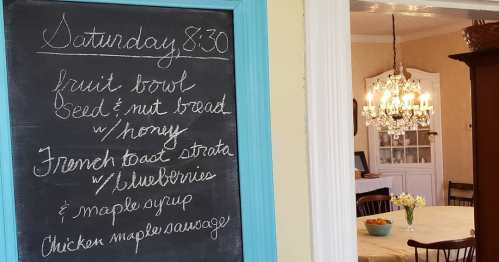 Saturday, 8:30
fruit bowl
Seed & nut bread
w/honey
French toast strata
w/blueberries
& maple syrup
Chicken maple sausage